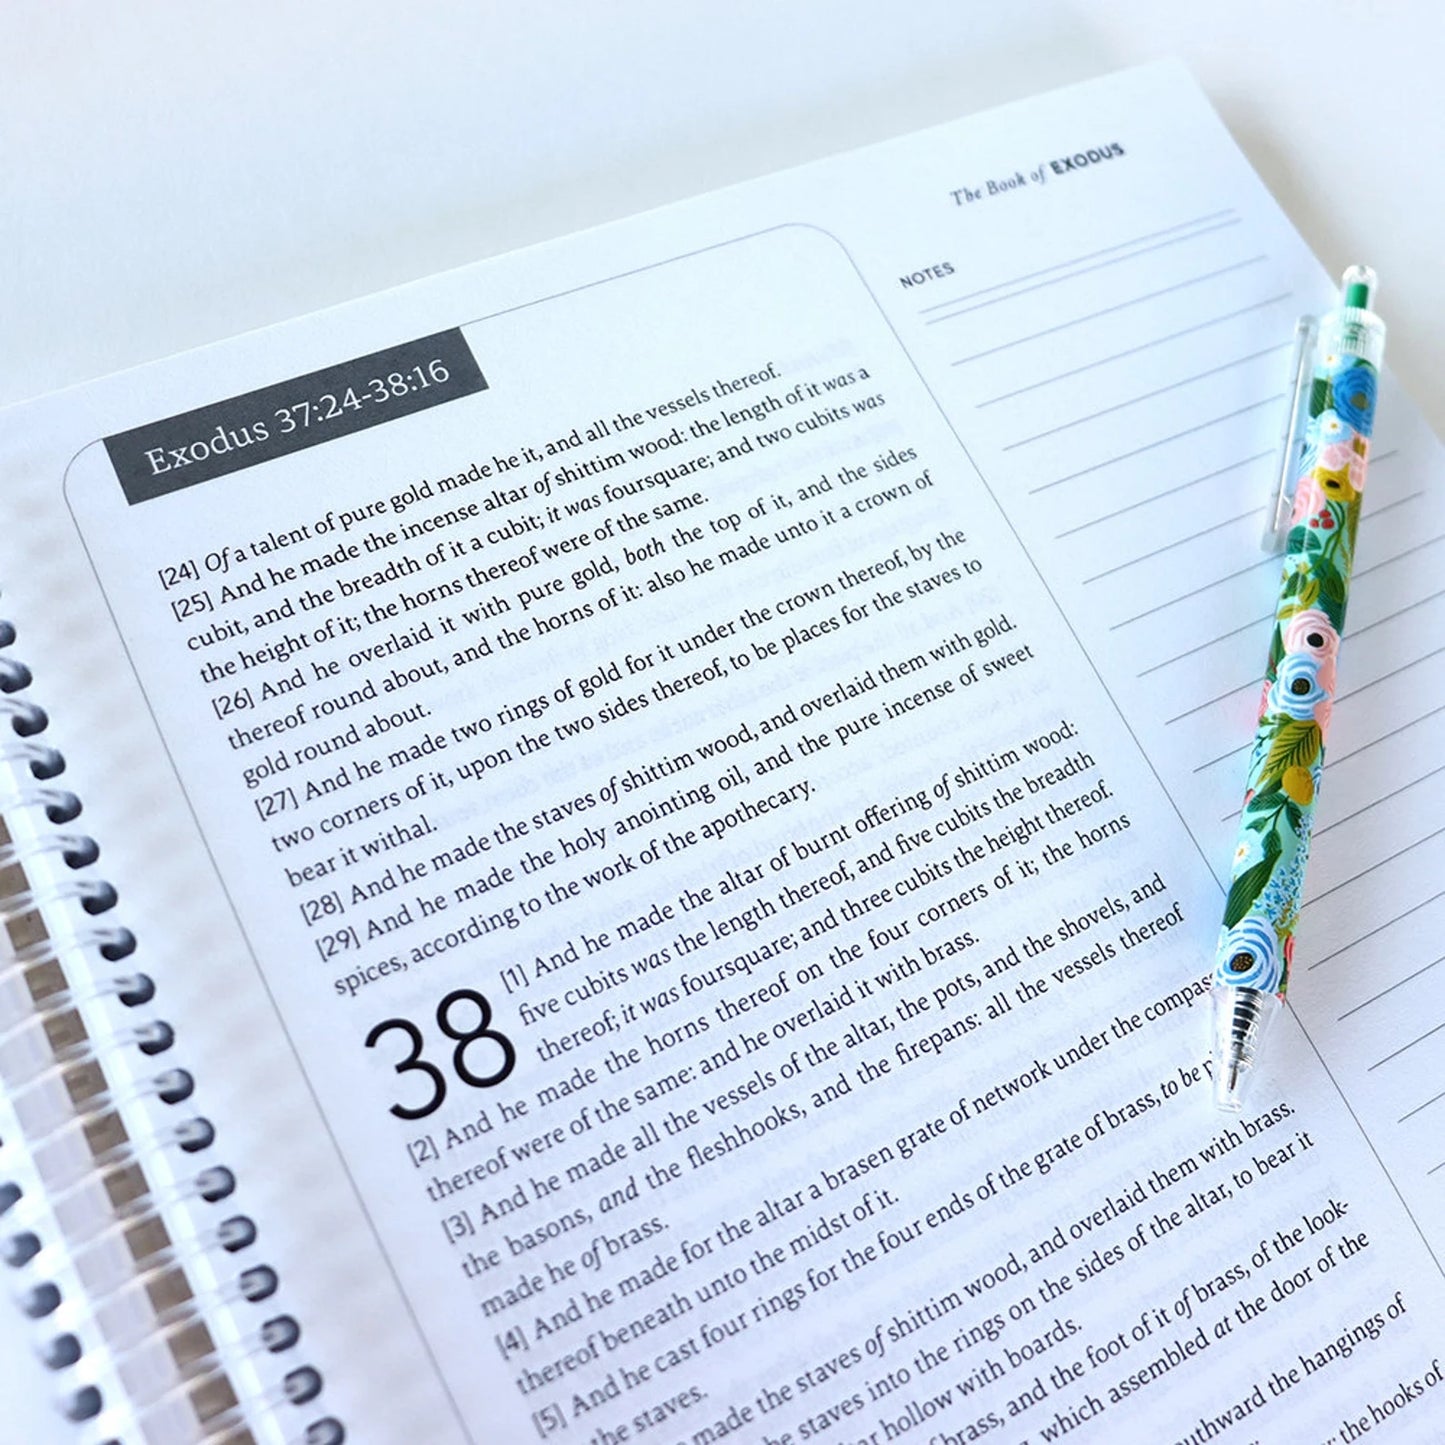 The Book of EXODUS
NOTES
Exodus 37:24-38:16
[24] Of a talent of pure gold made he it, and all the vessels thereof.
[25] And he made the incense altar of shittim wood: the length of it was a
cubit, and the breadth of it a cubit; it was foursquare; and two cubits was
the height of it; the horns thereof were of the same.
[26] And he overlaid it with pure gold, both the top of it, and the sides
thereof round about, and the horns of it: also he made unto it a crown of
gold round about.
[27] And he made two rings of gold for it under the crown thereof, by the
two corners of it, upon the two sides thereof, to be places for the staves to
bear it withal.
[28] And he made the staves of shittim wood, and overlaid them with gold.
[29] And he made the holy anointing oil, and the pure incense of sweet
spices, according to the work of the apothecary.
38
[1] And he made the altar of burnt offering of shittim wood:
five cubits was the length thereof, and five cubits the breadth
thereof; it was foursquare; and three cubits the height thereof.
[2] And he made the horns thereof on the four corners of it; the horns
thereof were of the same: and he overlaid it with brass.
[3] And he made all the vessels of the altar, the pots, and the shovels, and
the basons, and the fleshhooks, and the firepans: all the vessels thereof
made he of brass.
[4] And he made for the altar a brasen grate of network under the compass
thereof beneath unto the midst of it.
[5] And he cast four rings for the four ends of the grate of brass, to be
the staves.
made the staves of shittim wood, and overlaid them with brass.
he staves into the rings on the sides of the altar, to bear it
ar hollow with boards.
brass, and the foot of it of brass, of the look-
, which assembled at the door of the
uthward the hangings of
the hooks of